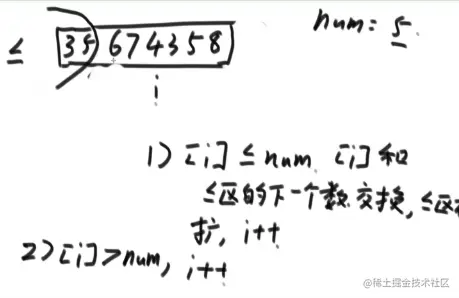 ≤ 35674358 num: 5
i
1) [i] ≤ num [i] 和
≤区的下一个数交换, ≤区
扩, i++
2) [i] > num, i++
@稀土掘金技术社区